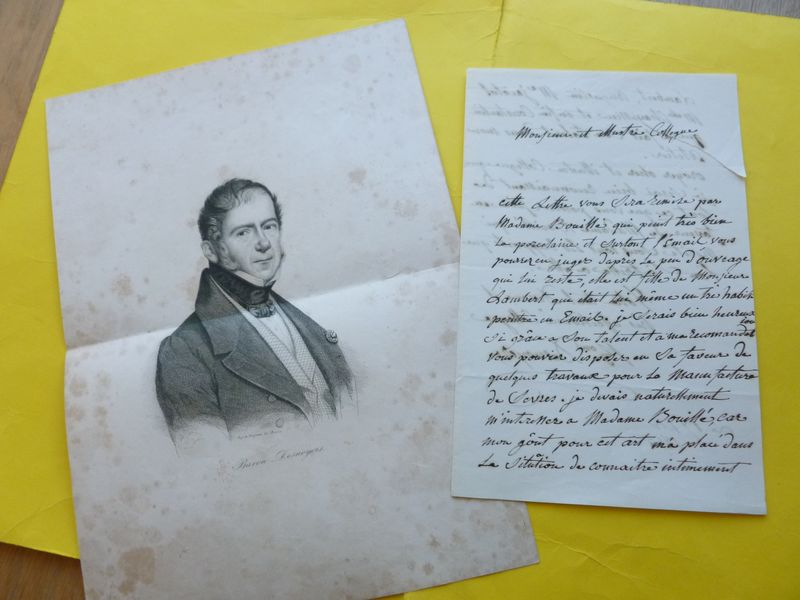 Baron Desnoyers.
Monsieur et illustre Collegue
cette Lettre vous Sera remise par
Madame Bouillé qui peint tres bien
La porcelaine et Surtout l'Email, vous
pourrez en juger d'après Le peu d'ouvrage
qui lui reste, elle est fille de Monsieur
Lambert que était lui même un tré habile
peintre en Email. je Serais bien heureux
Si grâce a Son talent et a ma recomandation
vous pouvier disposer en Sa faveur de
quelques travaux pour La Manufacture
de Sevres. je devais naturellement
m'intresser a Madame Bouillé, car
mon goût pour cet art m'a placé dans
La Sitution de connaitre intimement